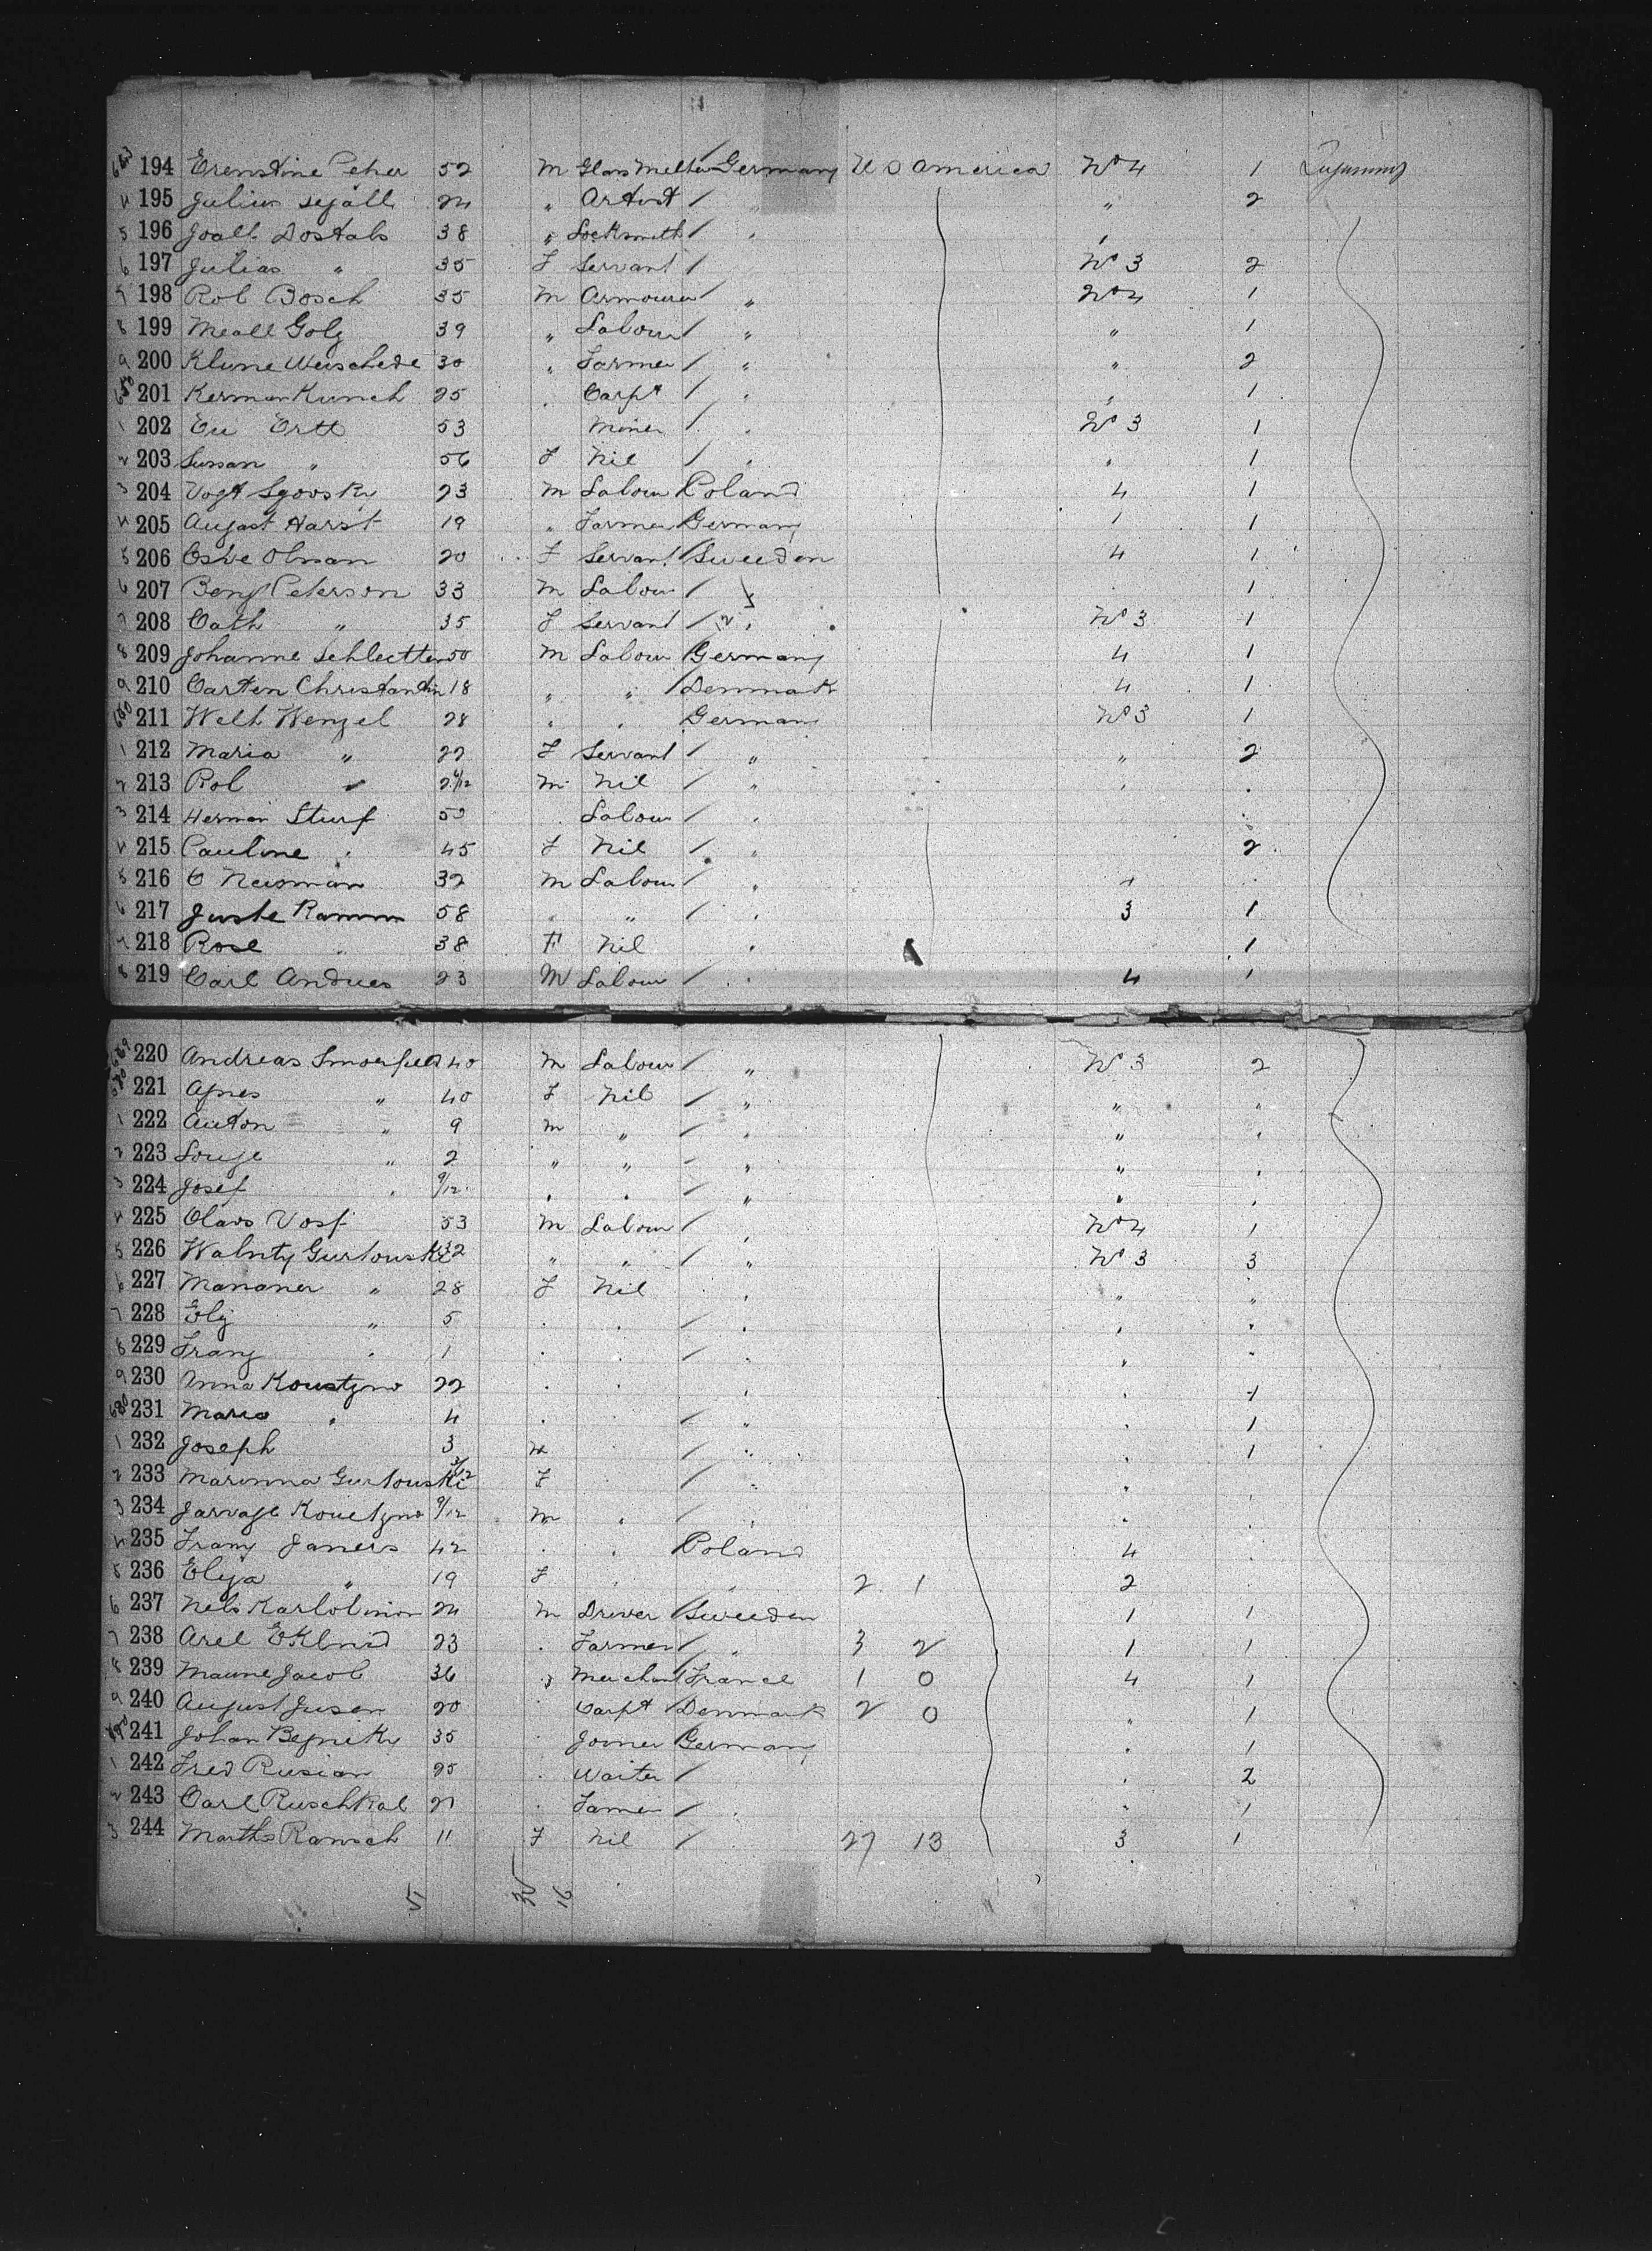 194 Erenstine Peher 52 M Glass Melter Germany U S America No 4 1
195 Julius Segall 24 " Artist / " " 2
196 Joall Dostals 38 " Locksmith / " "
197 Julias " 35 F Servant / No 3 2
198 Rob Bosch 35 M Armourer / " No 4 1
199 Meall Golz 39 " Labour / " " 1
200 Klune Weischede 30 " Farmer / " " 2
201 Kerman Kunch 25 " Carpt / " " 1
202 Eu Ertt 53 Miner / " No 3 1
203 Sussan " 56 F Nil / " " 1
204 Vogt Sgovsky 23 M Labour Poland 4 1
205 August Harst 19 " Farmer Germany 1 1
206 Oshe Olman 20 F Servant Sweeden 4 1
207 Beng Peterson 33 M Labour / " 1
208 Cath " 35 F Servant / " No 3 1
209 Johanne Schlectten 50 M Labour Germany 4 1
210 Carten Christantin 18 " " Denmark 4 1
211 Welt Wenzel 28 " " Germany No 3 1
212 Maria " 22 F Servant / " " 2
213 Rob " M Nil / " "
214 Herman Sturf Labour / "
215 Pauline " 45 F Nil / " 2
216 O Neisman 32 M Labour / "
217 Juste Ramm 58 " " / " 3 1
218 Rose " 38 F Nil " 1
219 Carl Andries 23 M Labour / " 4 1
220 Andreas Smoerfeld 40 M Labour / " No 3 2
221 Agnes " 40 F Nil / " " "
222 Anton " 9 M " / " " "
223 Louge " 2 " " / " " "
224 Josef " 9/12 " " / " " "
225 Olavs Vosf 53 M Labour / " No 4 1
226 Walnty Gurtouski 32 " " / " No 3 3
227 Mananer " 28 F Nil " " "
228 Elz " 5 " " / " " "
229 Franz " 1 " " / " " "
230 Anna Koustzno 22 " " " " 1
231 Maria " 4 " / " " 1
232 Joseph 3 M / " " 1
233 Marinna Gurtouski F " / " "
234 Jarvage Kouetzno 9/12 M " / " "
235 Franz Janers 42 " " Poland 4
236 Elija " 19 F " " 2 1 2
237 Nels Karlolinion 24 M Driver Sweeden 1 1
238 Arel Eklund 23 " Farmer / " 3 2 1 1
239 Maune Jacob 36 " Merchant France 1 0 4 1
240 August Jusen 20 " Carpt Denmark 2 0 " 1
241 Johan Begniky 35 " Joiner Germany " 1
242 Fred Rusian 25 " Waiter / " 2
243 Carl Ruschkal 21 " Farmer / " " 1
244 Martha Ramsch 11 F Nil / 27 13 3 1